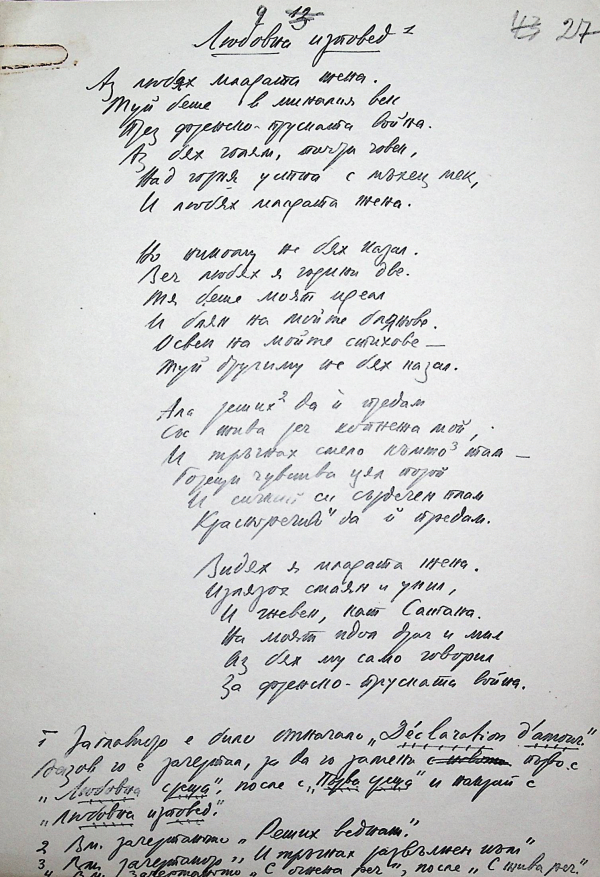 9 13
43 27
Любовна изповед 1
Аз любях младата жена.
Туй беше в миналия век
През френско-пруската война.
Аз бях голям, почти човек,
Над горня устна с мъхец мек,
И любях младата жена.
Но никому не бях казал.
Веч любях я години две.
Тя беше моят идеал
И блян на мойте блянове.
Освен на мойте стихове —
Туй другиму не бях казал.
Ала реших 2 да ѝ предам
Със жива реч копнежа мой,
И тръгнах смело към 3 там —
Горещи чувства цял порой
И си сърдечен плам
Красноречий да ѝ предам.
Видях я младата жена.
Излязох смаян и унил,
И гневен, кат Сатана.
На моят идол драг и мил
Аз бях му само говорил
За френско-пруската война.
1 Заглавието е било отначало „Déclaration d'amour."
Вазов го е зачертал, за да го замени първо с
„Любовна среща", после с „Първа среща" и накрай с
„Любовна изповед."
2 Вм. зачертаното „Реших веднъж."
3 Вм. зачертаното „И тръгнах развълнен към"
4 Вм. зачертаното „С огнена реч", после „С жива реч."